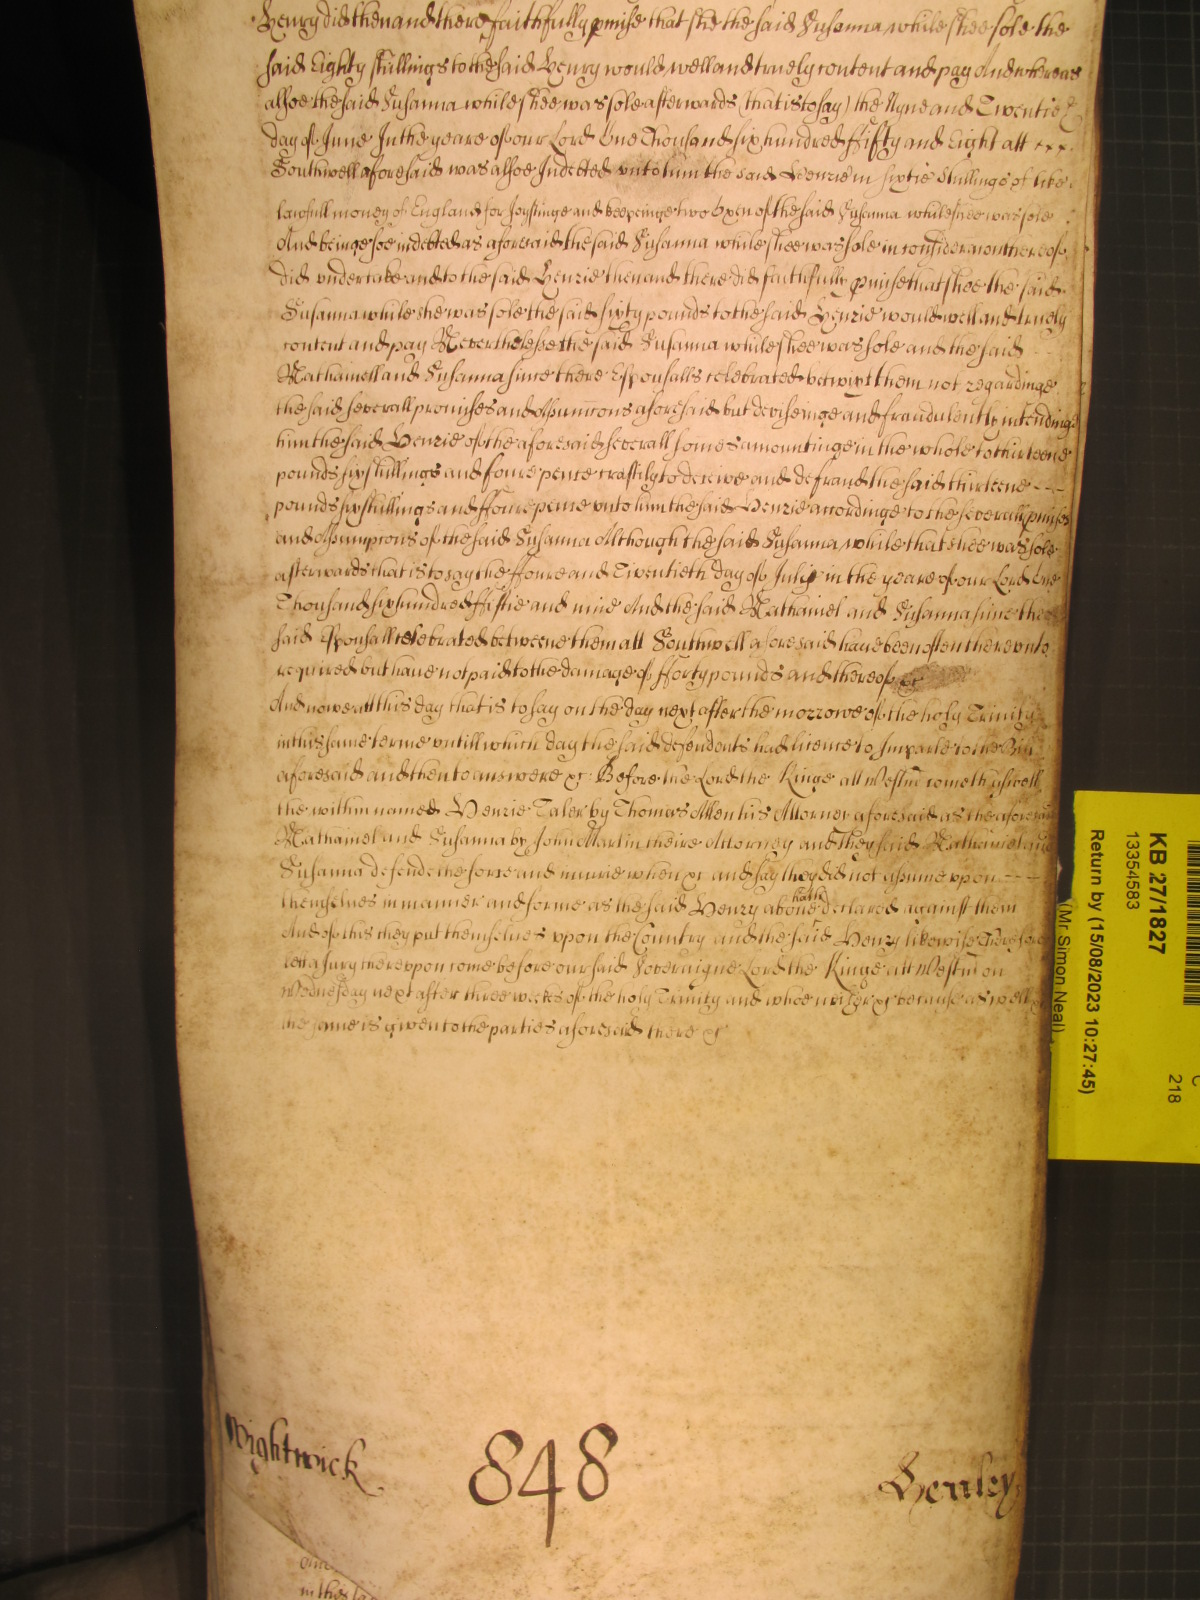 Henry did then and there faithfully pmise that she the said Susanna while shee sole the
said Eighty shillings to the said Henry would well and truely content and pay And whereas
alsoe the said Susanna while shee was sole afterwards (that is to say) the Nyne and Twentieth
day of June In the yeare of our Lord One Thousand six hundred ffifty and Eight att
Southwell aforesaid was alsoe Indebted unto him the said Henrie in sixtie shillings of like
lawfull money of England for Joystinge and keepeinge two Oxen of the said Susanna while shee was sole
And beinge soe indebted as aforesaid the said Susanna while shee was sole in consideracon thereof
did undertake and to the said Henrie then and there did faithfully pmise that shee the said
Susanna while she was sole the said sixty pounds to the said Henrie would well and truely
content and pay Neverthelesse the said Susanna while shee was sole and the said
Nathaniell and Susanna since there Espousalls celebrated betwixt them not regardinge
the said severall promises and Assumcons aforesaid but deviseinge and fraudulently intendinge
him the said Henrie of the aforesaid severall somes amountinge in the whole to thirteene
pounds six shillings and foure pence craftily to deceive and defraud the said thirteene
pounds six shillings and ffoure pence unto him the said Henrie accordinge to the severall pmises
and Assumpcons of the said Susanna Although the said Susanna while that shee was sole
afterwards that is to say the ffoure and Twentieth day of July in the yeare of our Lord One
Thousand six hundred ffiftie and nine And the said Nathaniel and Susanna since the
said Espousall celebrated betweene them att Southwell aforesaid have been often thereunto
required but have not paid to the damage of fforty pounds and thereof
And nowe att this day that is to say on the day next after the morrowe of the holy Trinity
in this same terme untill which day the said defendents had licence to Imparle to the Bill
aforesaid and then to answere &c Before the Lord the Kinge att Westm cometh aswell
the within named Henrie Taler by Thomas Allen his Attorney aforesaid as the aforesaid
Nathaniel and Susanna by John Martin theire Attorney and they said Nathaniel and
Susanna defende the force and iniurie when &c and say they did not assume upon
themselves in manner and forme as the said Henry above hath declared against them
And of this they put themselves upon the Country and the said Henry likewise Therefore
lett a Jury thereupon come before our said Soveraigne Lord the Kinge att Westm on
Wednesday next after three weeks of the holy Trinity and whoe neither &c because as well &c
the same is given to the parties aforesaid there &c
Wightwick 848 Henley
in this
KB 27/1827
13354583
Return by (15/08/2023 10:27:45)
(Mr Simon Neal)
218